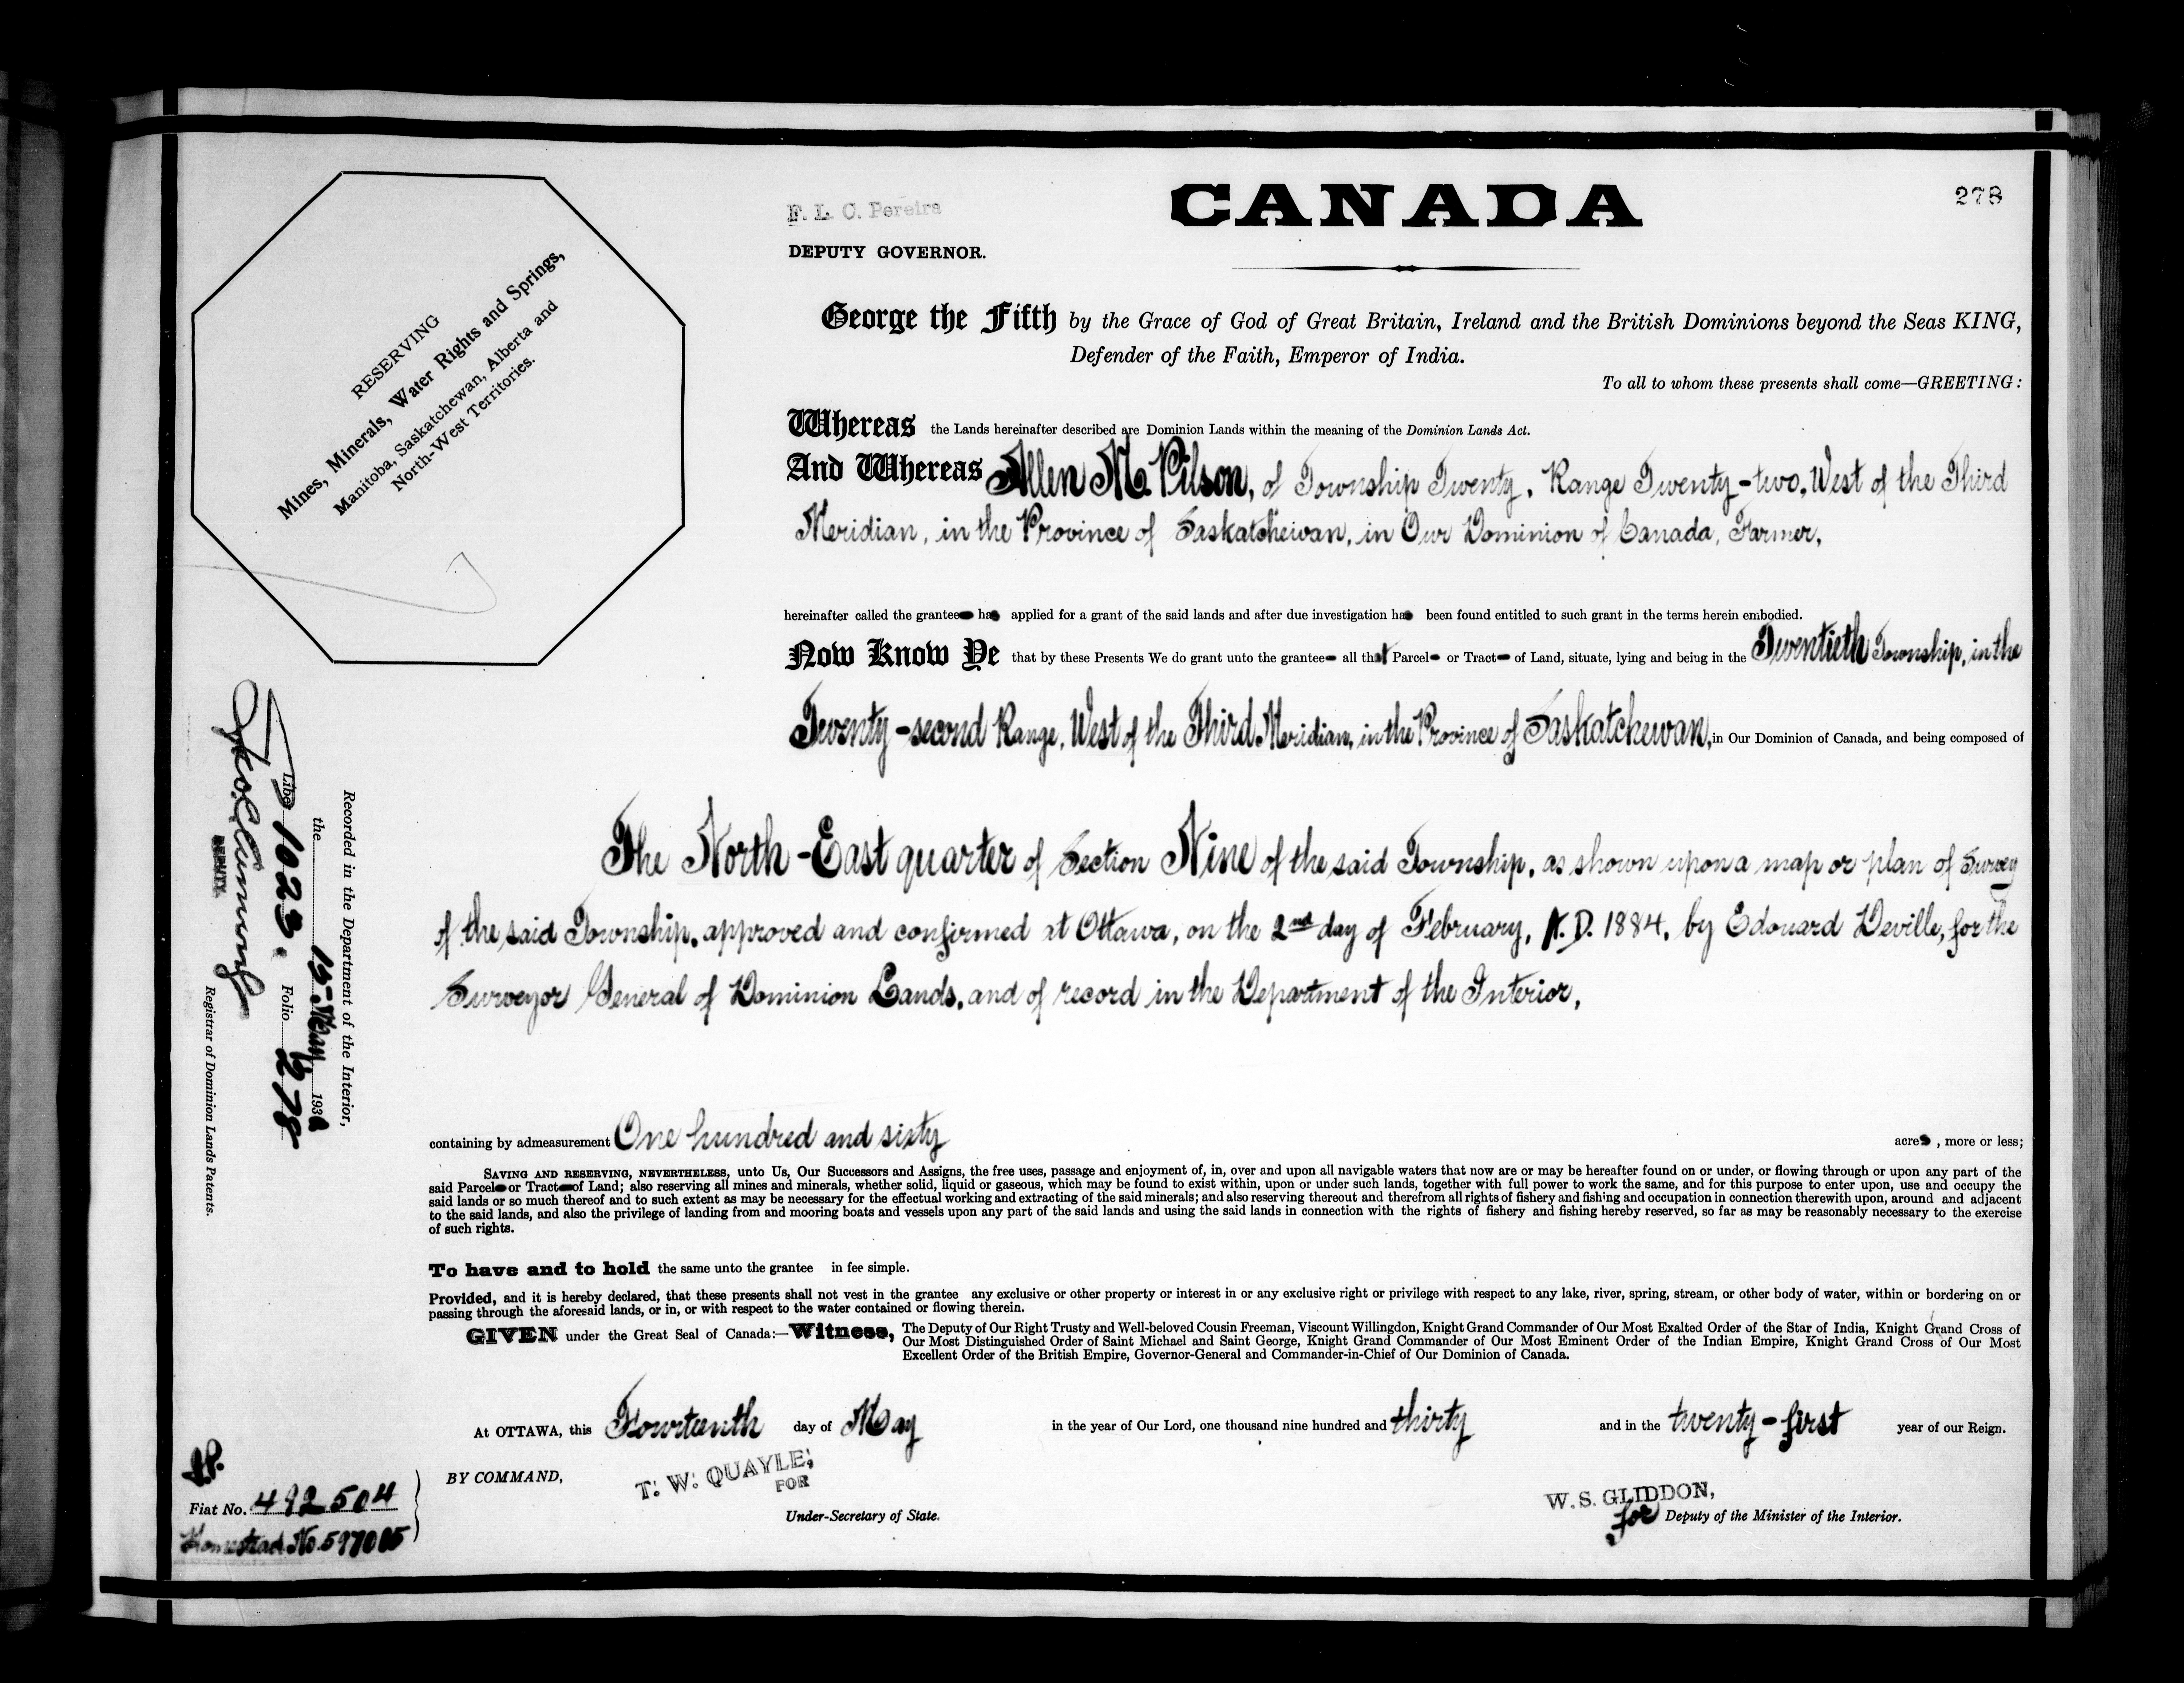 278
F. L. C. Pereira
DEPUTY GOVERNOR.
CANADA
RESERVING
Mines, Minerals, Water Rights and Springs,
Manitoba, Saskatchewan, Alberta and
North-West Territories.
George the Fifth by the Grace of God of Great Britain, Ireland and the British Dominions beyond the Seas KING,
Defender of the Faith, Emperor of India.
To all to whom these presents shall come—GREETING:
Whereas the Lands hereinafter described are Dominion Lands within the meaning of the Dominion Lands Act.
And Whereas Allen M. Pilson, of Township Twenty, Range Twenty-two, West of the Third
Meridian, in the Province of Saskatchewan, in Our Dominion of Canada, Farmer,
hereinafter called the grantee has applied for a grant of the said lands and after due investigation has been found entitled to such grant in the terms herein embodied.
Now Know Ye that by these Presents We do grant unto the grantee all that Parcel or Tract of Land, situate, lying and being in the Twentieth Township, in the
Twenty-second Range, West of the Third Meridian, in the Province of Saskatchewan, in Our Dominion of Canada, and being composed of
The North-East quarter of Section Nine of the said Township, as shown upon a map or plan of Survey
of the said Township, approved and confirmed at Ottawa, on the 2nd day of February, A.D. 1884, by Edouard Deville, for the
Surveyor General of Dominion Lands, and of record in the Department of the Interior,
containing by admeasurement One hundred and sixty acres, more or less;
SAVING AND RESERVING, NEVERTHELESS, unto Us, Our Successors and Assigns, the free uses, passage and enjoyment of, in, over and upon all navigable waters that now are or may be hereafter found on or under, or flowing through or upon any part of the
said Parcel or Tract of Land; also reserving all mines and minerals, whether solid, liquid or gaseous, which may be found to exist within, upon or under such lands, together with full power to work the same, and for this purpose to enter upon, use and occupy the
said lands or so much thereof and to such extent as may be necessary for the effectual working and extracting of the said minerals; and also reserving thereout and therefrom all rights of fishery and fishing and occupation in connection therewith upon, around and adjacent
to the said lands, and also the privilege of landing from and mooring boats and vessels upon any part of the said lands and using the said lands in connection with the rights of fishery and fishing hereby reserved, so far as may be reasonably necessary to the exercise
of such rights.
To have and to hold the same unto the grantee in fee simple.
Provided, and it is hereby declared, that these presents shall not vest in the grantee any exclusive or other property or interest in or any exclusive right or privilege with respect to any lake, river, spring, stream, or other body of water, within or bordering on or
passing through the aforesaid lands, or in, or with respect to the water contained or flowing therein.
GIVEN under the Great Seal of Canada:—Witness, The Deputy of Our Right Trusty and Well-beloved Cousin Freeman, Viscount Willingdon, Knight Grand Commander of Our Most Exalted Order of the Star of India, Knight Grand Cross of
Our Most Distinguished Order of Saint Michael and Saint George, Knight Grand Commander of Our Most Eminent Order of the Indian Empire, Knight Grand Cross of Our Most
Excellent Order of the British Empire, Governor-General and Commander-in-Chief of Our Dominion of Canada.
At OTTAWA, this Fourteenth day of May in the year of Our Lord, one thousand nine hundred and thirty and in the twenty-first year of our Reign.
BY COMMAND,
T. W. QUAYLE,
FOR
Under-Secretary of State.
W. S. GLIDDON,
for Deputy of the Minister of the Interior.
Recorded in the Department of the Interior,
the 15 May, 1930
Liber 1023. Folio 278
DEPUTY
Registrar of Dominion Lands Patents.
Fiat No. 492504
Homestead No. 597005